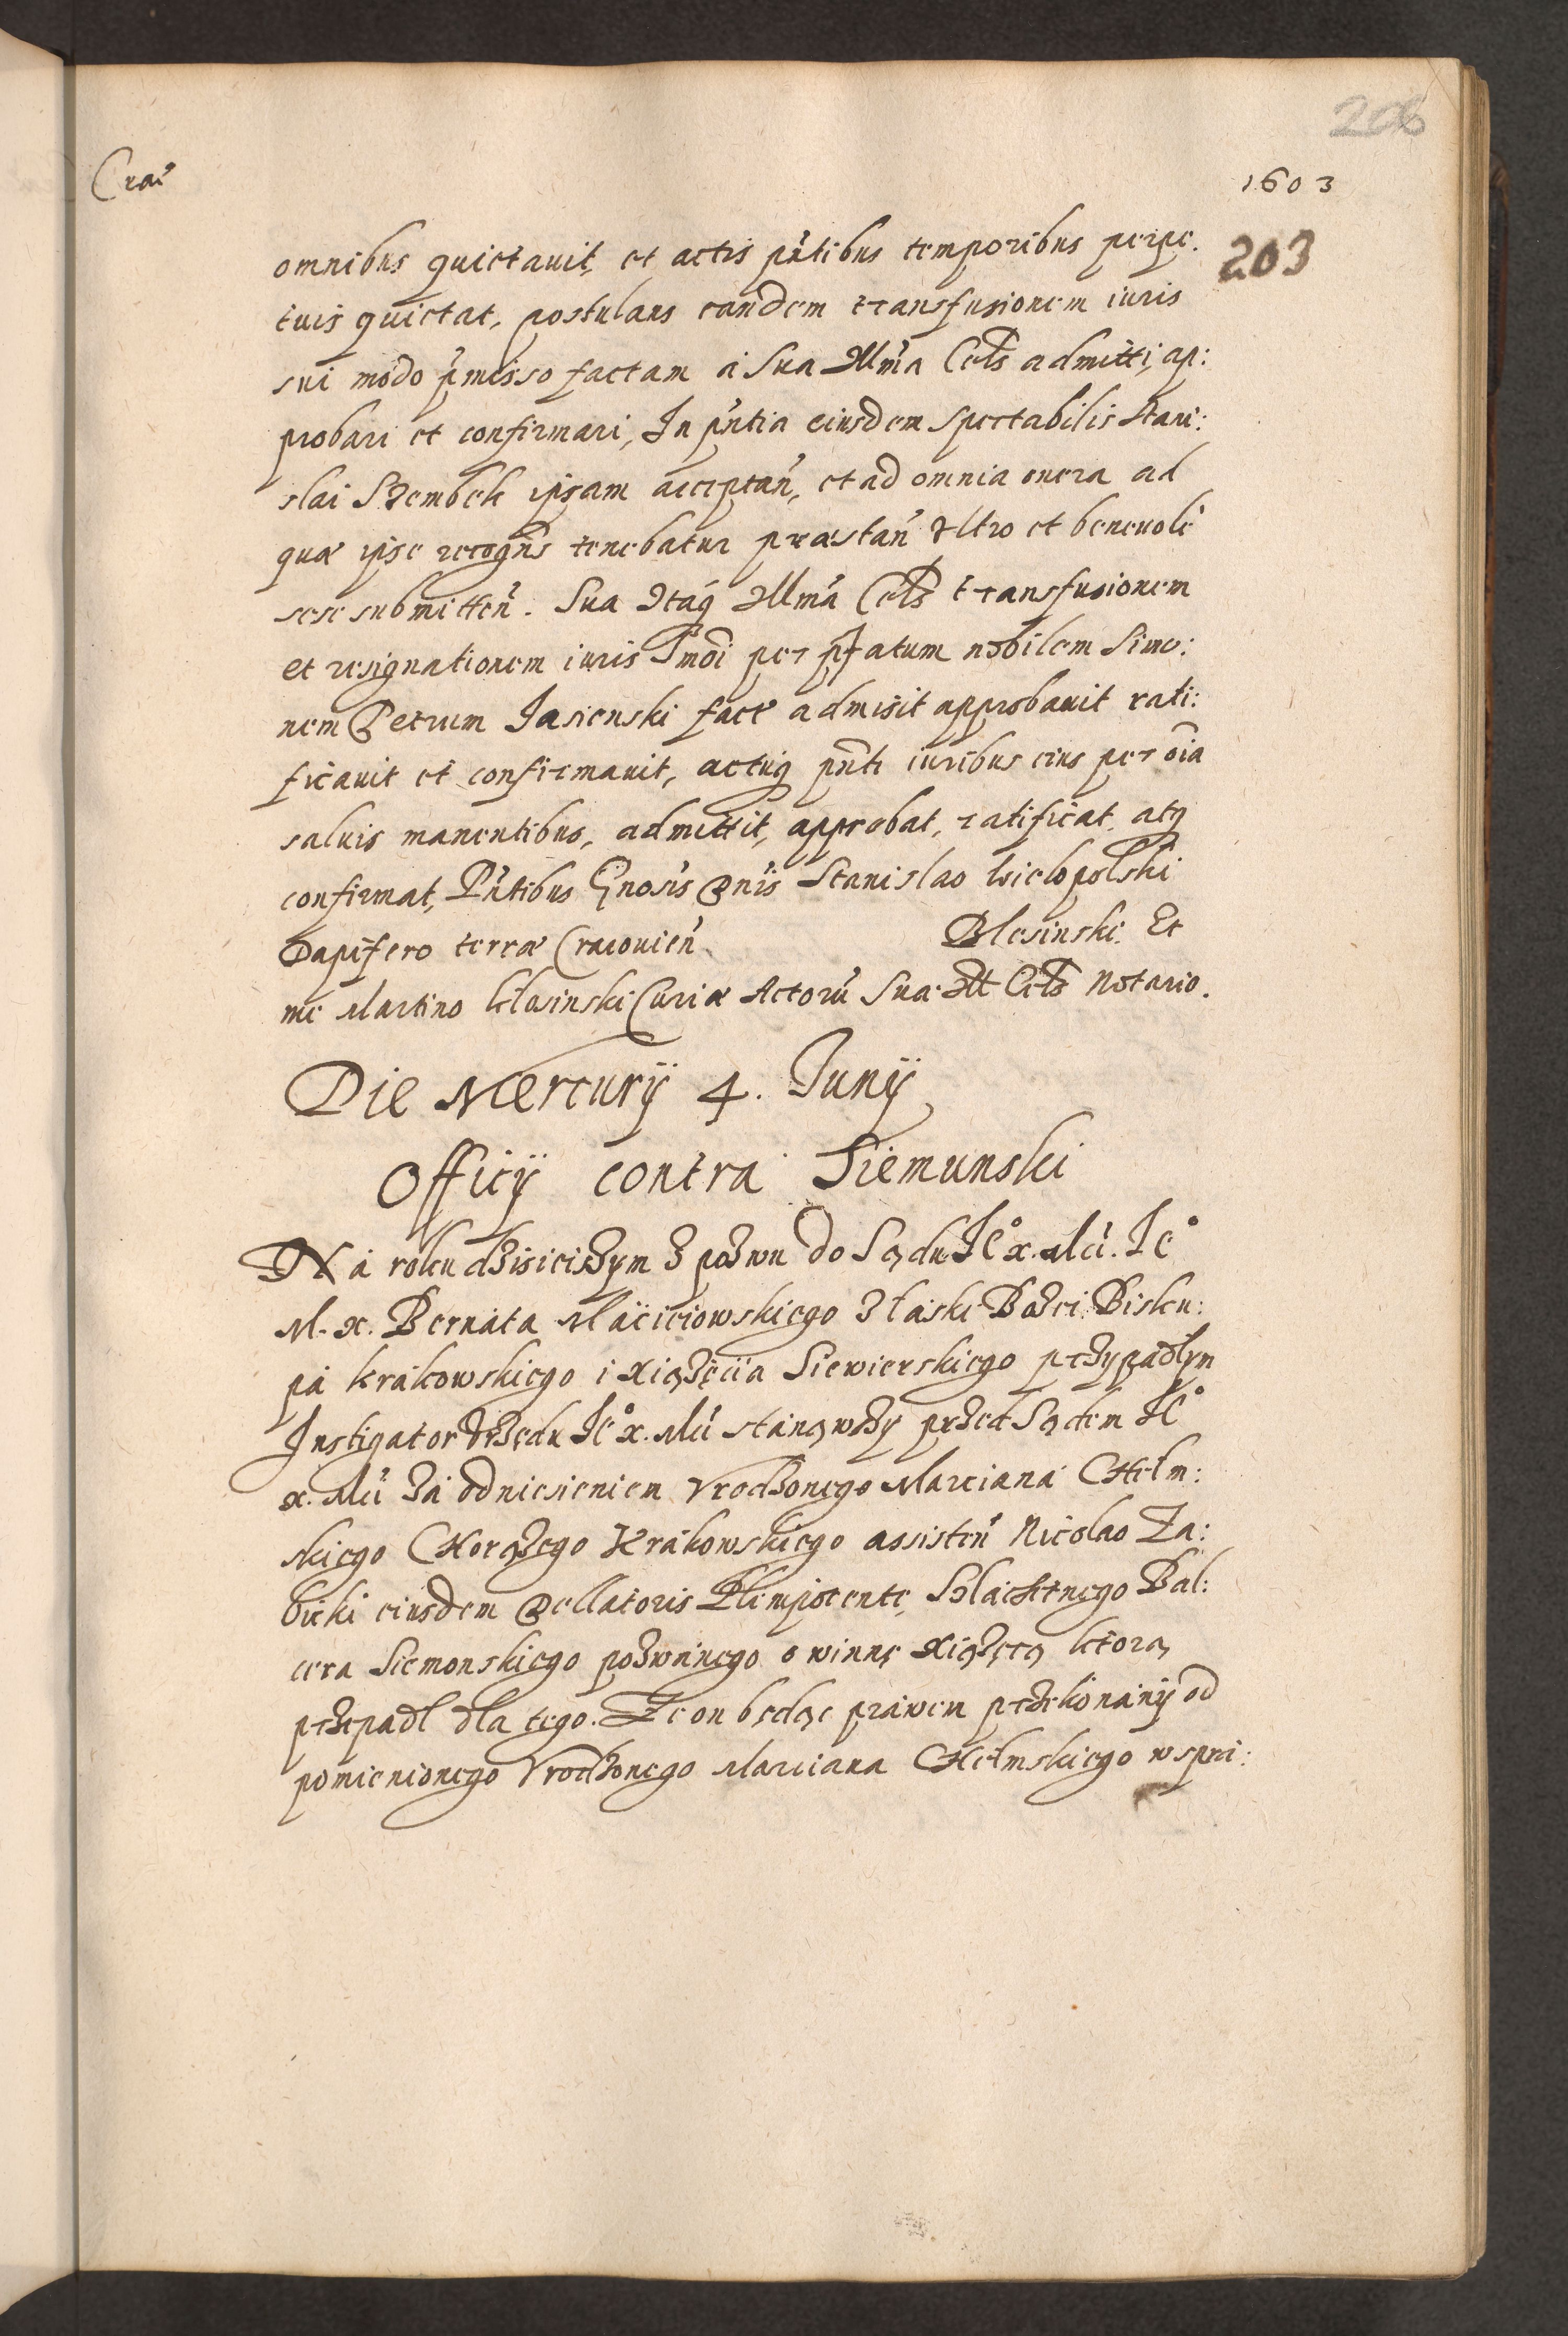 206
Crac̃
1603
203
omnibus quietauit, et actis pñtibus temporibus perpe:
tuis quietat, postulans eandem transfusionem iuris
sui modo p̃misso factam a Sua Illm̃a Cels admitti, ap:
probari et confirmari, In pñtia eiusdem Spectabilis Stani:
slai Szembek ipsam acceptañ, et ad omnia onera ad
quæ ipse recogñs tenebatur præstañ Vltro et beneuole
sese submitteñ. Sua Itaq̃ Illm̃a Cels transfusionem
et resignationem iuris h̃mõi per p̃fatum nobilem Simo:
nem Petrum Jasienski fact̃ admisit approbauit rati:
ficauit et confirmauit, actuq̃ pñti iuribus eius per oĩa
saluis manentibus, admittit, approbat, ratificat, atq̃
confirmat, Pñtibus Gñosis Dñis Stanislao Wielopolski
Dapifero terræ Cracouieñ Blesinski. Et
me Martino Klosinski Curiæ Actorũ Suæ Ill Cels Notario.
Die Mercurÿ 4. Junÿ
Officÿ contra Siemunski
Na roku dzisieiszym z pozwu do Sądu Je° x. Mci. Je°
M. x. Bernata Macieiowskiego z łaski Bozei Bisku:
pa krakowskiego i Xiązęcia Siewierskiego przypadłym
Instigator Vrzędu Je° x. Mci stanąwszy przed Sądem Je°
x. Mci za odniesieniem Vrodzonego Marciana Chełm:
skiego Chorązego Krakowskiego assisteñ Nicolao Za:
bicki eiusdem Dellatoris Plenipotente, Szlachetnego Bal:
cera Siemonskiego pozwanego o winnę Xiązęcą ktorą
przepadł dla tego. Ze on będąc prawem przekonanÿ od
pomienionego Vrodzonego Marciana Chełmskiego w spra: